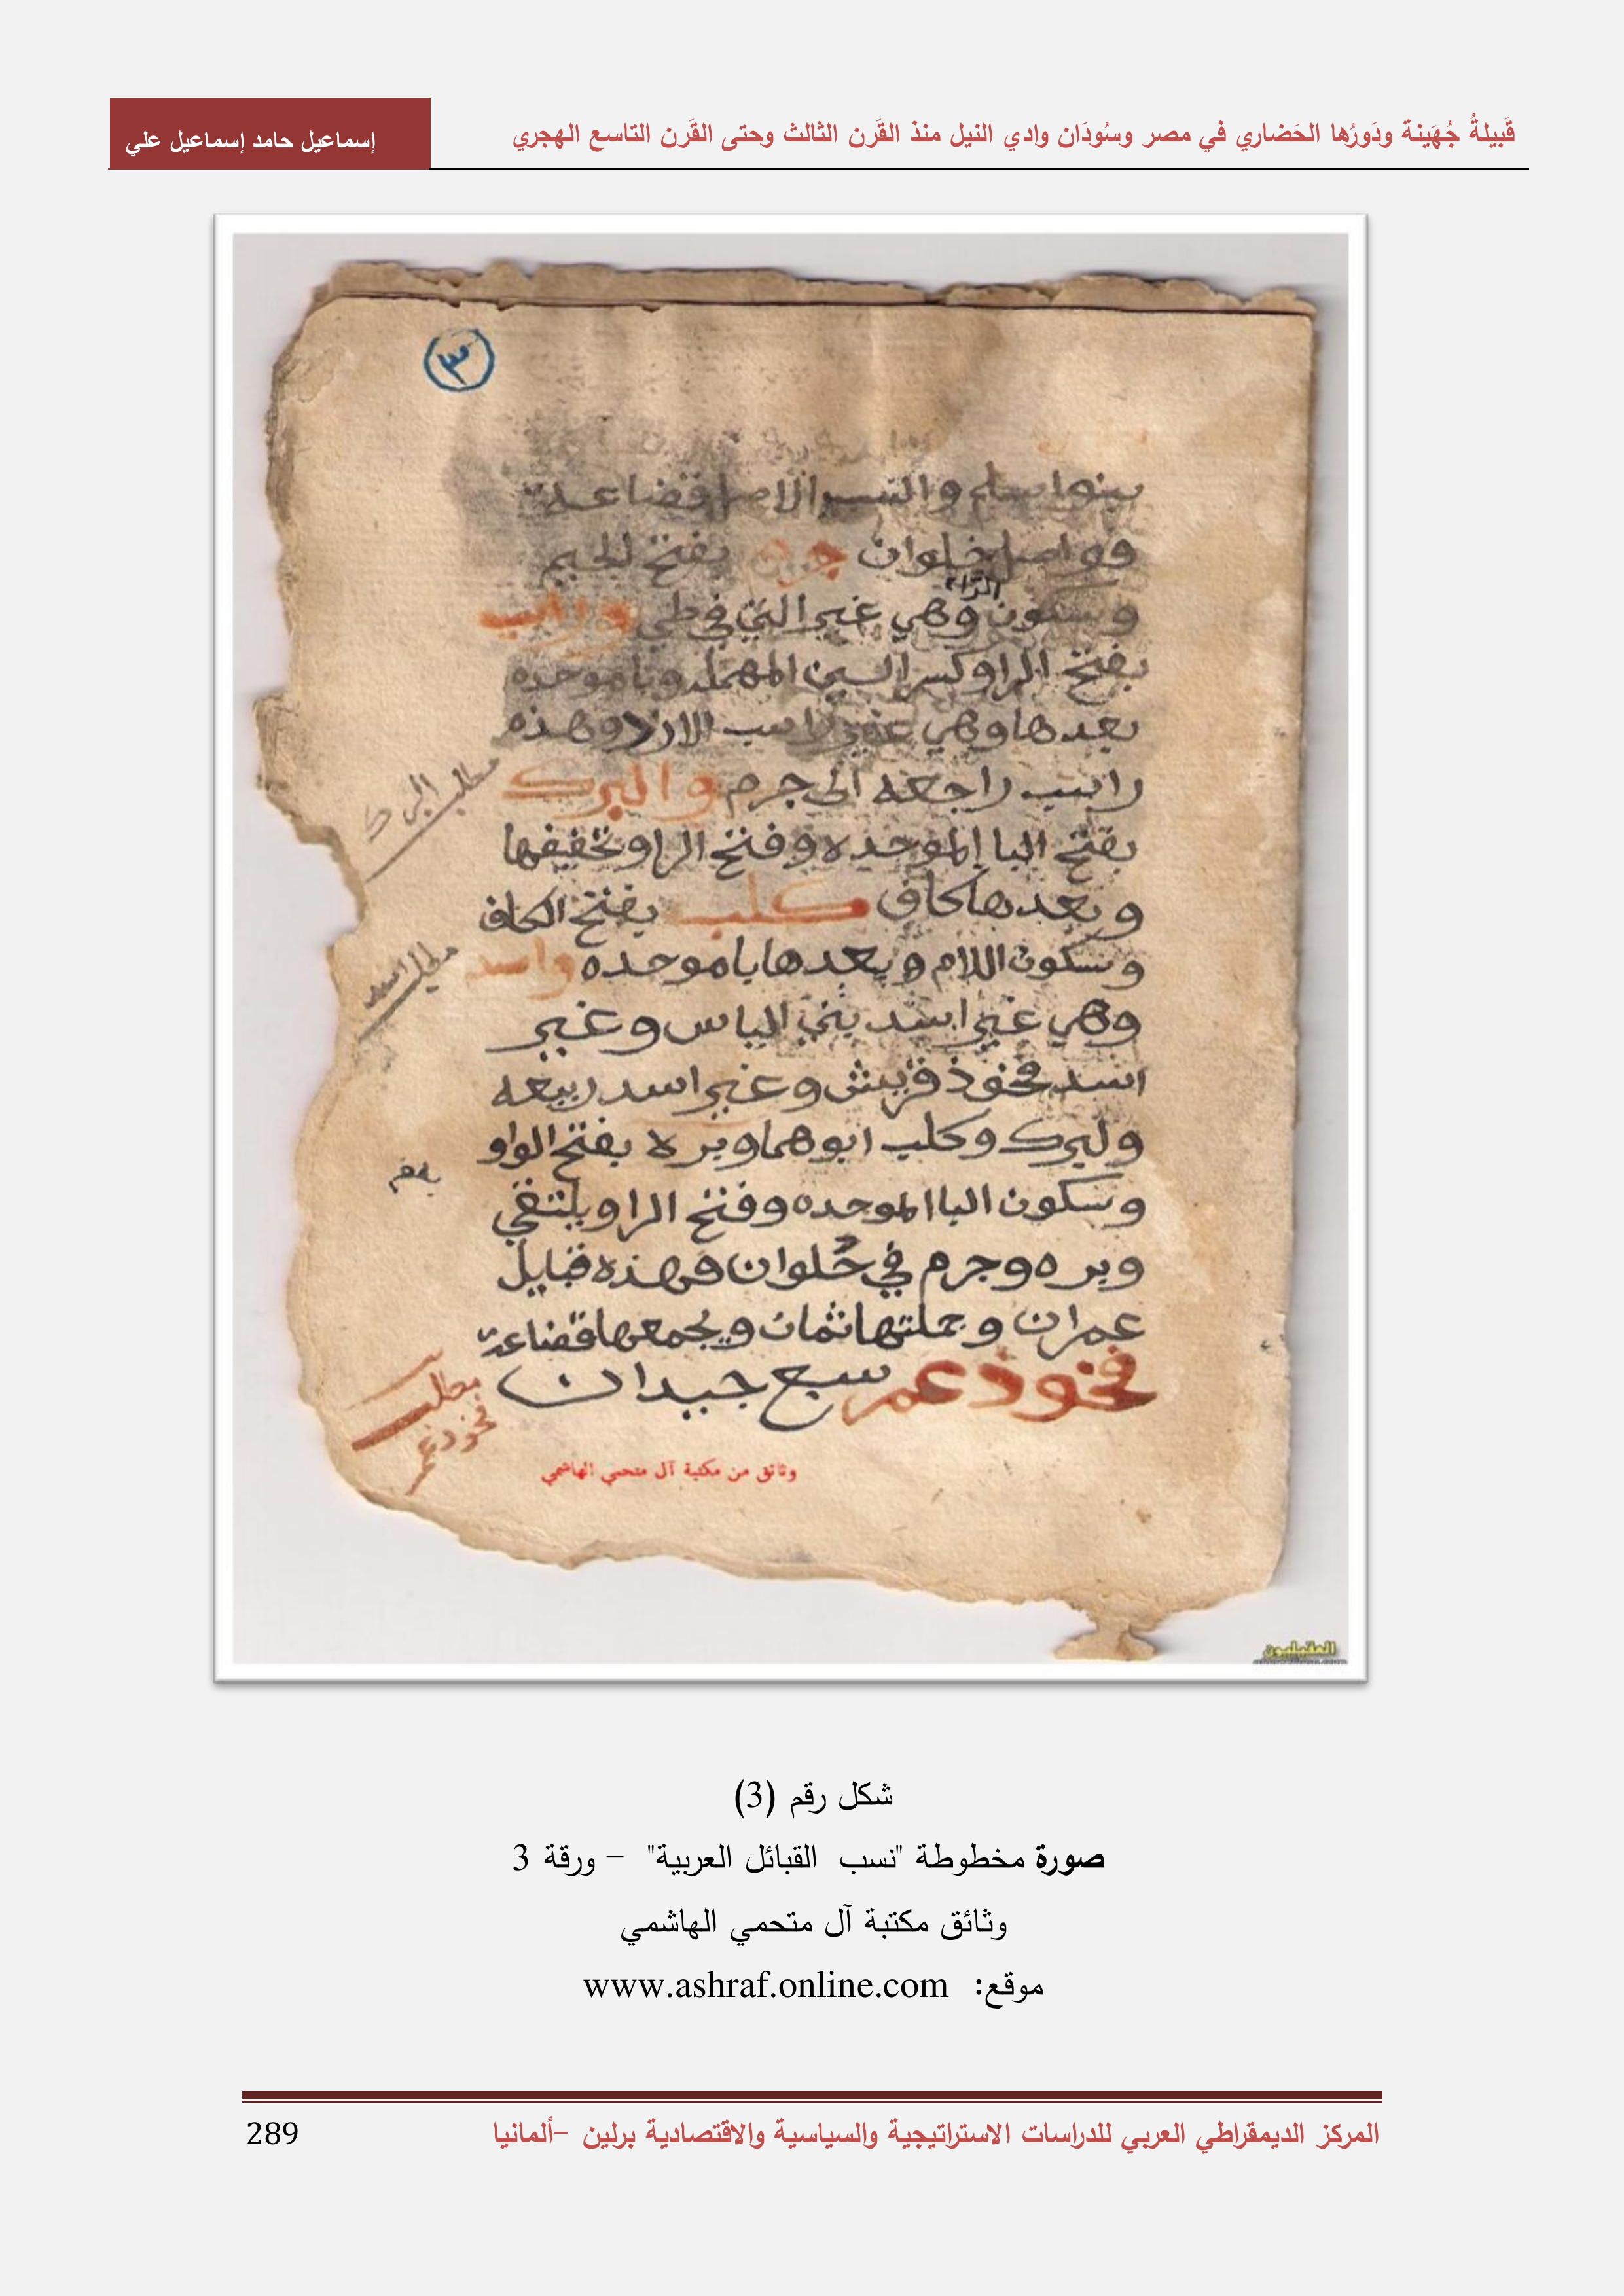 قَبيلةُ جُهَينة ودَورُها الحَضاري في مصر وسُودَان وادي النيل منذ القَرن الثالث وحتى القَرن التاسع الهجري
إسماعيل حامد إسماعيل علي
٣
والنسب الاصل قضاعة
بفتح الجيم
وسكون الراء وهي غير التي في طي وراسب
بفتح الرا وكسر السين المهمله وبا موحده
بعدها وهي غير راسب الازد وهذه
راسب راجعه الى جرم والبرك
مطلب البرك
بفتح البا الموحده وفتح الرا وتخفيفها
وبعدها كاف كلب بفتح الكاف
وسكون اللام وبعدها با موحده واسد
مطلب اسد
وهي غير اسد بني الياس وغير
اسد فخوذ قريش وغير اسد ربيعه
ولبرك وكلب ابوهما وبره بفتح الواو
وسكون البا الموحده وفتح الرا ويلتقي
وبره وجرم في حُلوان فهذه قبايل
عمران وجملتها ثمان ويجمعها قضاعة
فخوذ عمر سبع جيدان
مطلب
فخوذ عمر
وثائق من مكتبة آل متحمي الهاشمي
العقيليون
شكل رقم (3)
صورة مخطوطة "نسب القبائل العربية" – ورقة 3
وثائق مكتبة آل متحمي الهاشمي
موقع: www.ashraf.online.com
المركز الديمقراطي العربي للدراسات الاستراتيجية والسياسية والاقتصادية برلين –ألمانيا
289